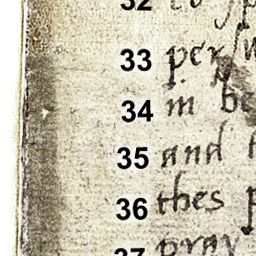 32
33 per
34 in be
35 and
36 thes
37 pray